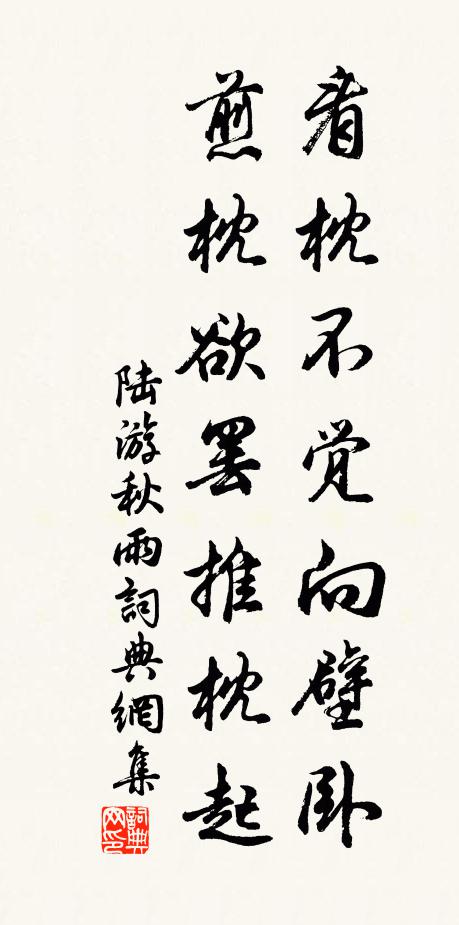 看枕不觉向壁卧
煎枕欲罢推枕起
陆游秋雨詞典網集
詞典网印